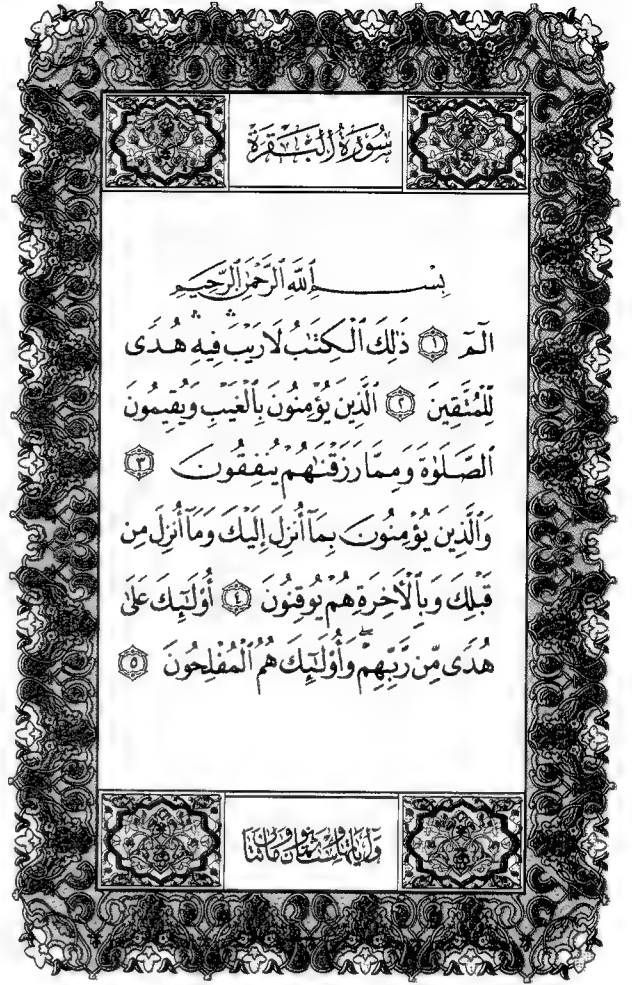 سُورَةُ ٱلْبَقَرَةِ
بِسْمِ ٱللَّهِ ٱلرَّحْمَٰنِ ٱلرَّحِيمِ
الٓمٓ ۝١ ذَٰلِكَ ٱلْكِتَٰبُ لَا رَيْبَ ۛ فِيهِ ۛ هُدًى
لِّلْمُتَّقِينَ ۝٢ ٱلَّذِينَ يُؤْمِنُونَ بِٱلْغَيْبِ وَيُقِيمُونَ
ٱلصَّلَوٰةَ وَمِمَّا رَزَقْنَٰهُمْ يُنفِقُونَ ۝٣
وَٱلَّذِينَ يُؤْمِنُونَ بِمَآ أُنزِلَ إِلَيْكَ وَمَآ أُنزِلَ مِن
قَبْلِكَ وَبِٱلْأَخِرَةِ هُمْ يُوقِنُونَ ۝٤ أُو۟لَٰٓئِكَ عَلَىٰ
هُدًى مِّن رَّبِّهِمْ ۖ وَأُو۟لَٰٓئِكَ هُمُ ٱلْمُفْلِحُونَ ۝٥
وآياتها ست وثمانون ومائتان